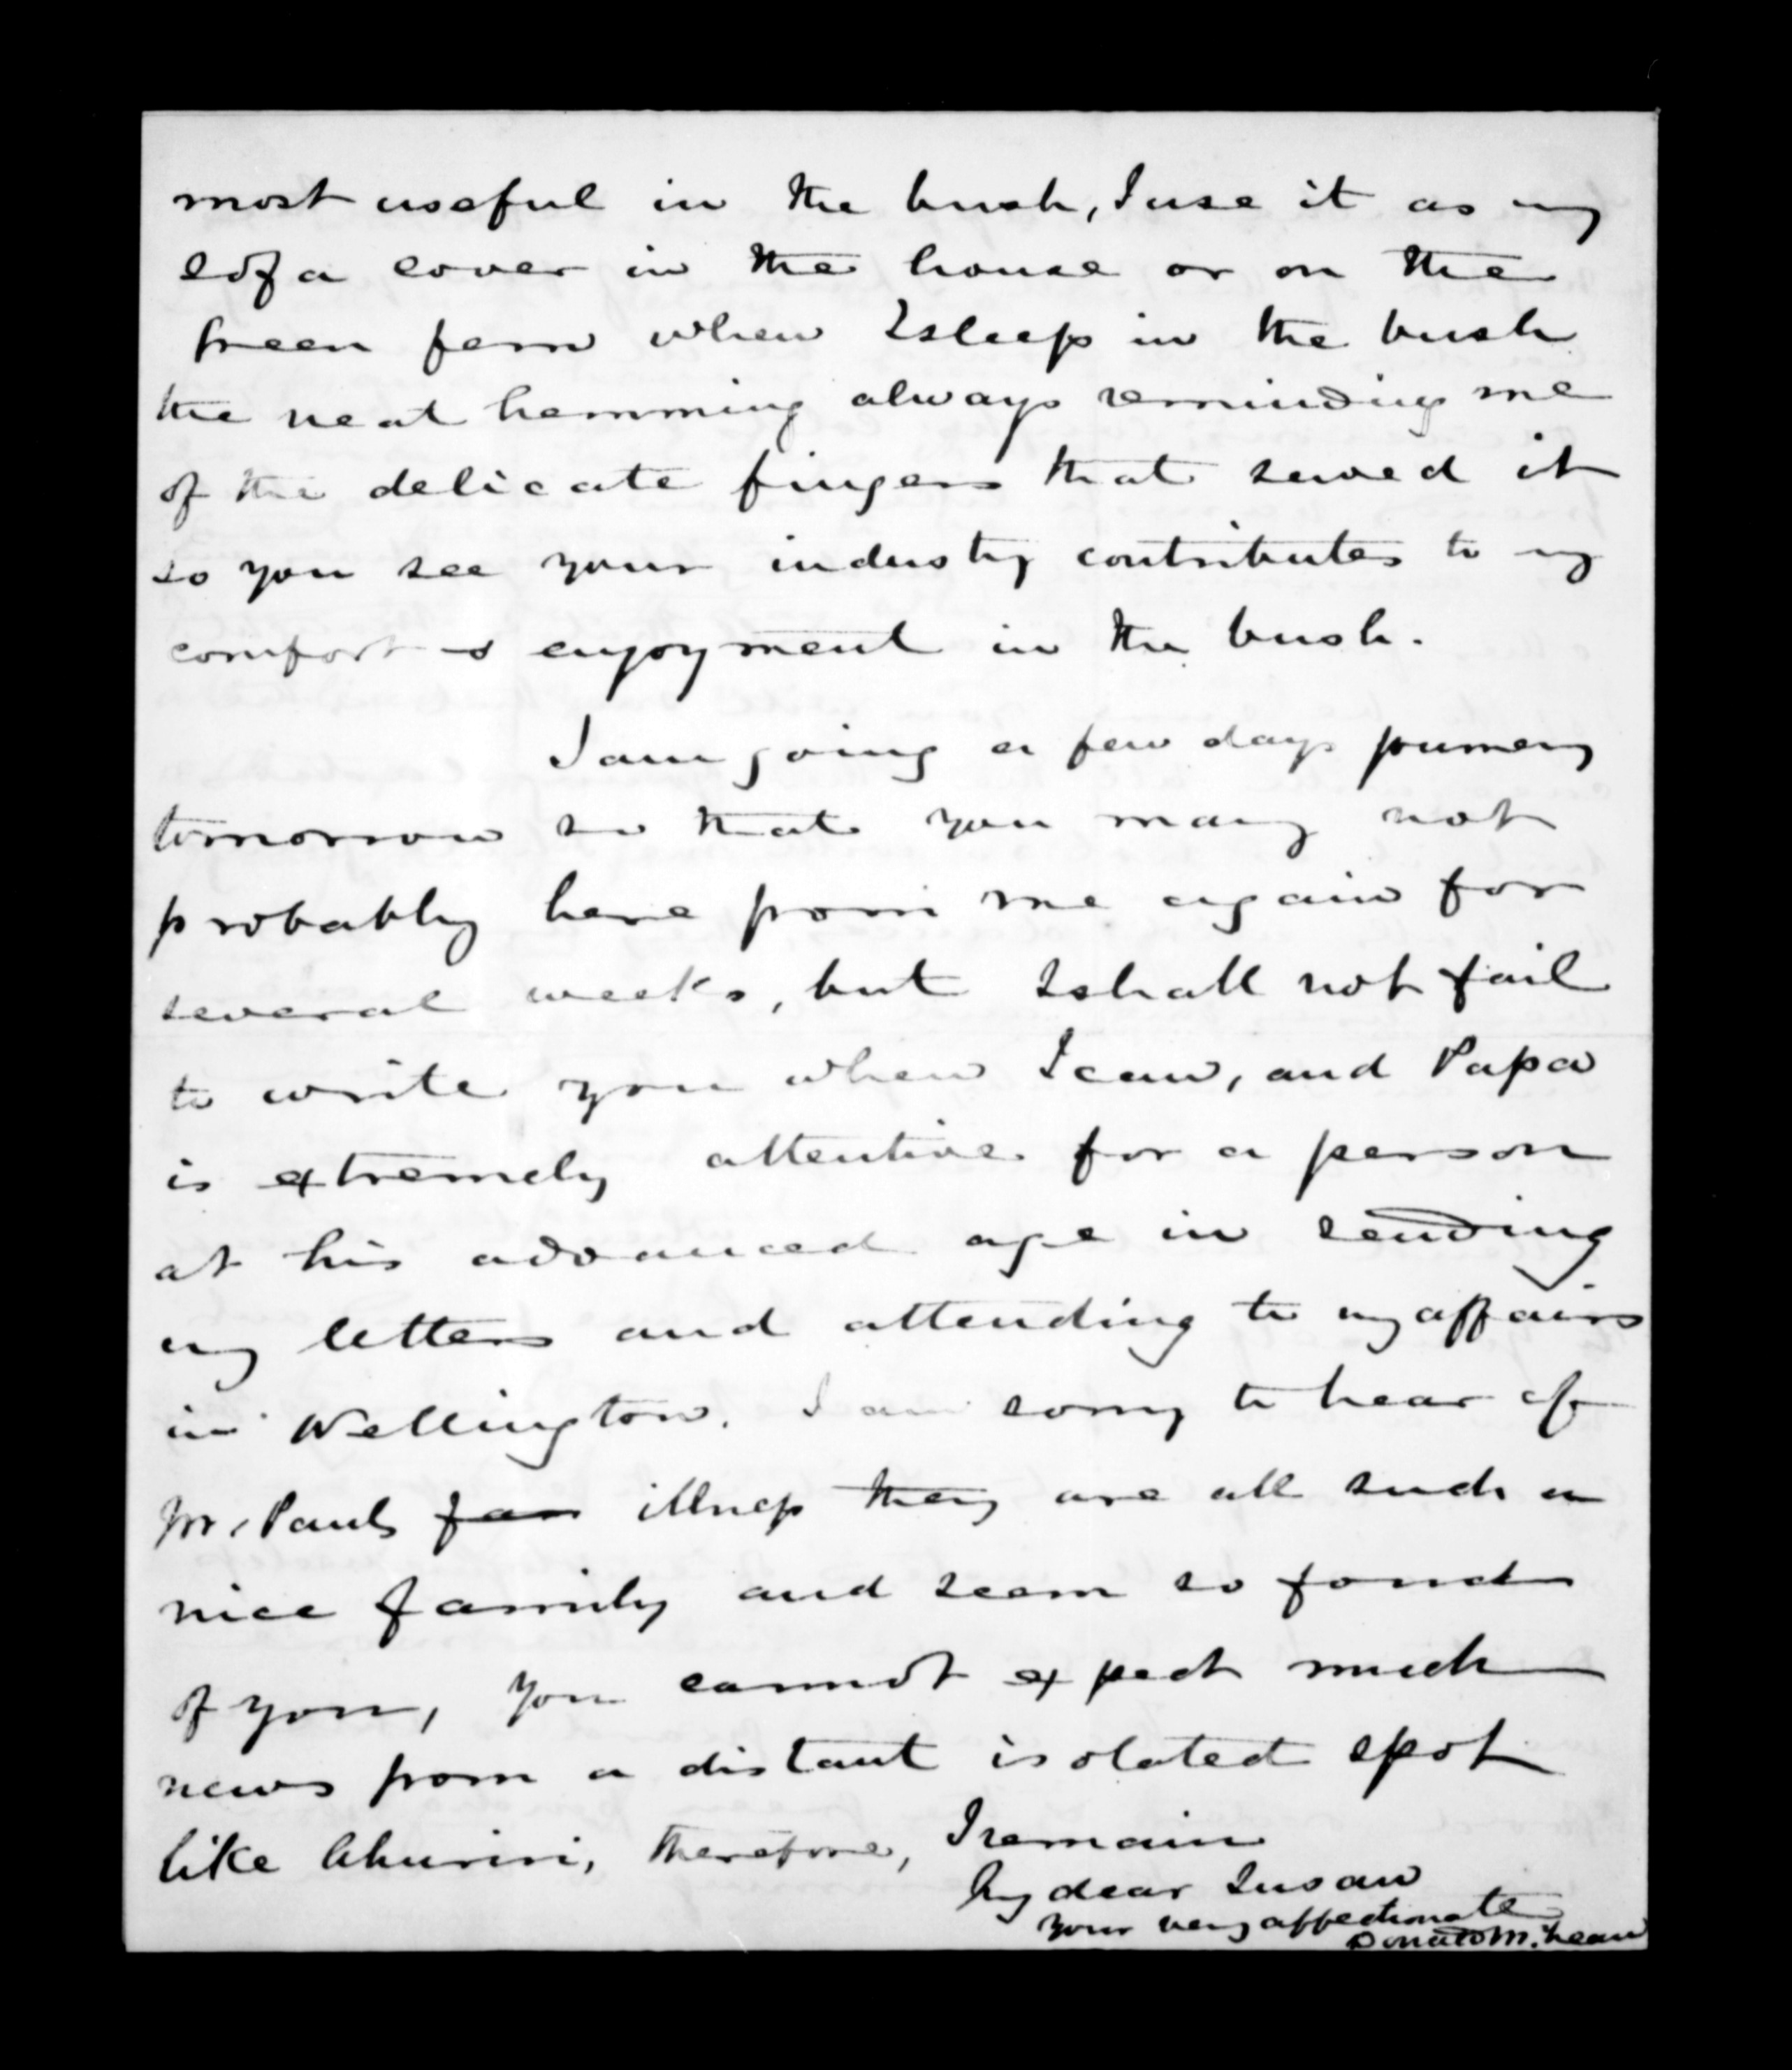 most useful in the bush, I use it as my
sofa cover in the house or on the
green fern when I sleep in the bush
the neat hemming always reminding me
of the delicate fingers that sewed it
so you see your industry contributes to my
comfort & enjoyment in the bush.
I am going a few days journey
tomorrow so that you may not
probably here from me again for
several weeks, but I shall not fail
to write you when I can, and Papa
is extremely attentive for a person
at his advanced age in sending
my letters and attending to my affairs
in Wellington. I am sorry to hear of
Mr. Pauls illness they are all such a
nice family and seem so fond
of you, you cannot expect much
news from a distant isolated spot
like Ahuriri, therefore, I remain
My dear Susan
your very affectionate
Donald McLean